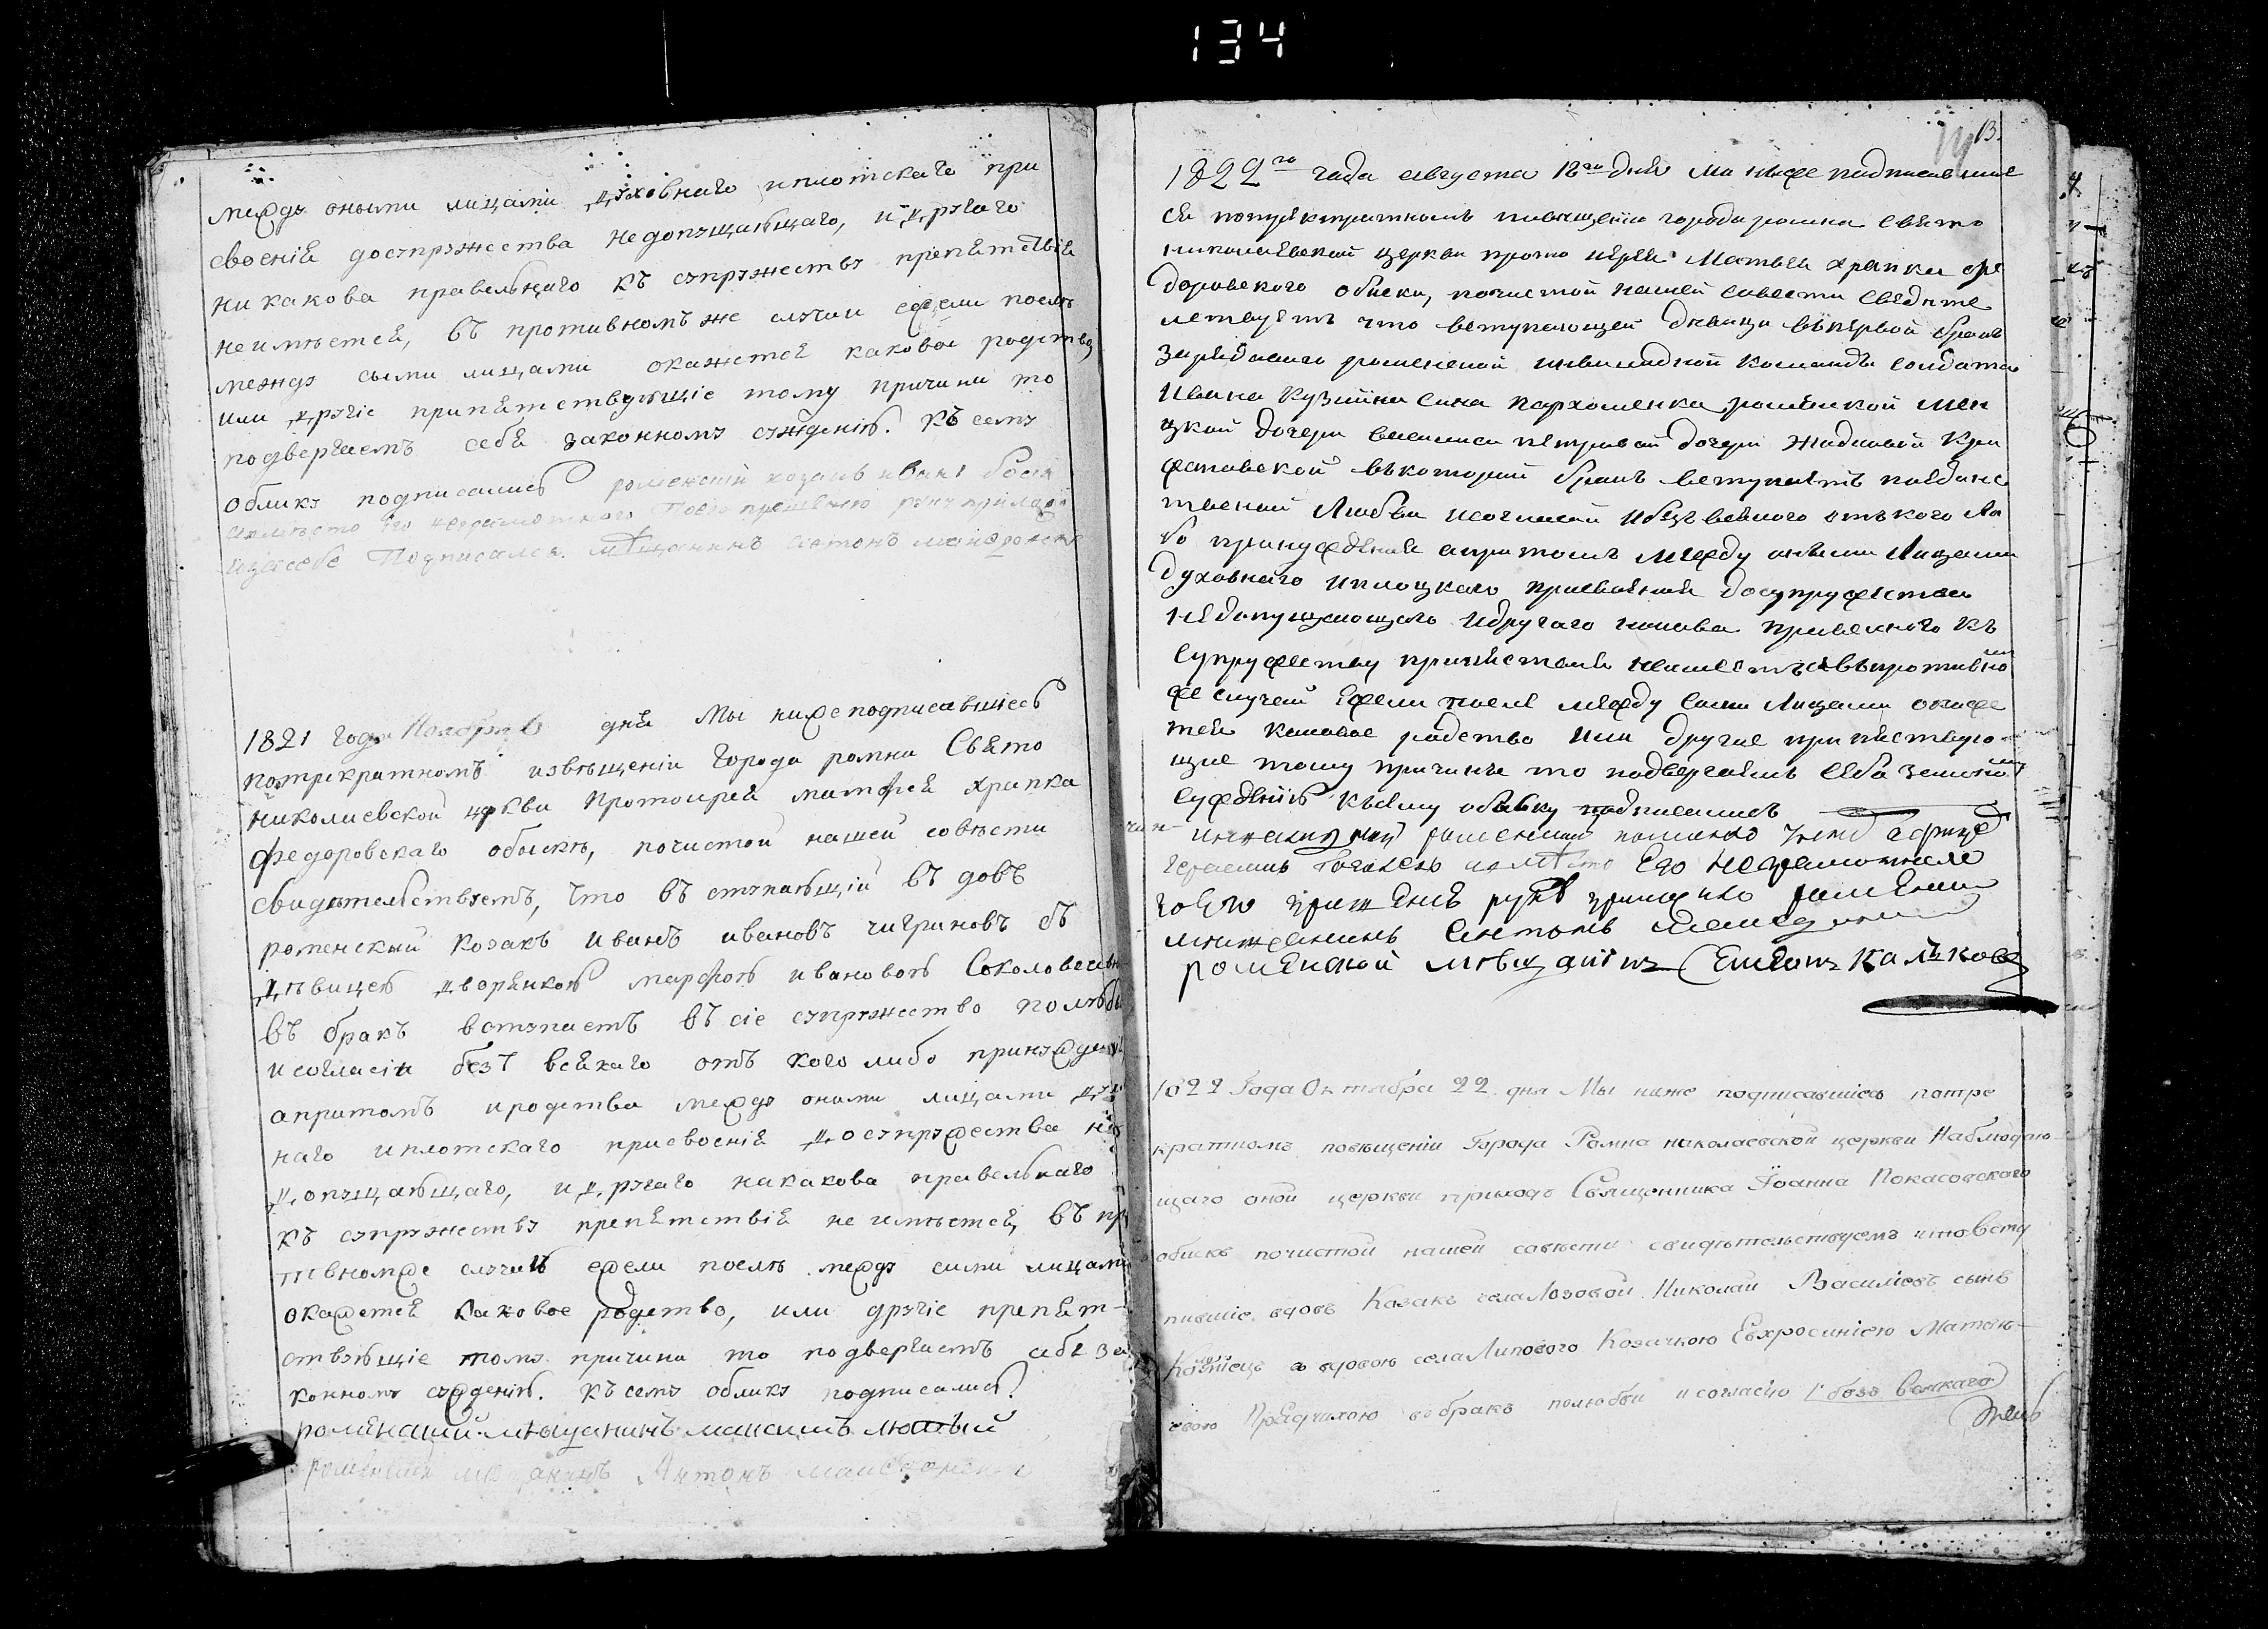 134
междъ оными лицами духовнаго иплотскаго при
своенія досупружества недопущающаго, и другаго
никакова правельнаго къ супружеству препятствія
неимѣется, въ противномъ же случаи ежели послѣ
между сыми лицами окажется каковое родство
или другіе припятствующіе тому причини то
подвергаемъ себя законному сужденію. Къ сему
обыску подписались роменскій козакъ иванъ
вмѣсто его неграмотного Поего прошенію руку приложи
изасебе Подписался мѣщанинъ антонъ
1821 года Ноября дня Мы ниже подписавшiесь
потрекратномъ извѣщеніи города ромна Свято
Николаевской церкви Протоирея матфея храпка
федоровскаго обыскъ, почистой нашей совѣсти
свидѣтельствуемъ, что въ ступающій въ довъ
роменскый козакъ иванъ ивановъ чигриновъ съ
дѣвицею дворянкою марфою ивановою Соколовскою
въ бракъ вступаетъ въ сіе супружество полюбви
исогласіи безъ всякаго отъ кого либо принужденія
апритомъ иродства между оними лицами дух
наго иплотскаго присвоенія досупружества не
допущающаго, и другаго никакова правельнаго
къ супружеству препятствія не имѣется, въ пр
тивномже случаѣ ежели послѣ между сими лицами
окажется каковое родство, или другіе препят-
ствующіе тому причини то подвергаемъ себя за
конному сужденію. Къ сему обыску подписались.
роменский мѣщанинъ максимъ лютый
роменский мѣщанинъ Антонъ
13
1822го года августа 18го дня Мы ниже подписавшие
ся потрекратномъ повещению города ромна Свято
николаевской церкви прото иерея Матвея храпка фе
доровского обыска, почистой нашей совести свидете
летвуемъ что вступающей дѣвици въпервой бракъ
роменской инвалидной команды солдата
Ивана Кузмина сина Пархоменка роменской мещ
цкой дочери василиси петривой дочери
въкоторий бракъ вступаютъ поединс
твеной Любви исогласии ибезъ всякого отъкого ли
бо принуждения апритомъ между оными Лицами
духовнаго иплоцкаго присвоения досупружества
недопущающаго идругаго никова правелного къ
супружеству припятствия неимеетъся въпротивномъ
же случей Ежели после между сыми Лицами окаже
тся каковое родство или другие припятствую-
щие тому причины то подвергаемъ себя законому
суждению Късему обыску подписались
роменской
вместо Его неграмотнаго
поего прошению руку приложилъ роменский
мищанинъ Антонъ
роменской мѣщанинъ Калѣковъ
1822 Года Октября 22 дня Мы ниже подписавшіесь потре
кратномъ повѣщеніи Города Ромна николаевской церкви Наблюдаю-
щаго оной церкви приходъ Священника Іоанна Покасовского
обискъ почистой нашей совѣсти свидѣтельствуемъ чтовсту
пившіе вдовъ Казакъ села Лозовой Николай Василіевъ сынъ
вдовою села Липового Козачкою Евхросиніею Матвѣ-
евою вобракъ полюбви исогласію безъ всякаго